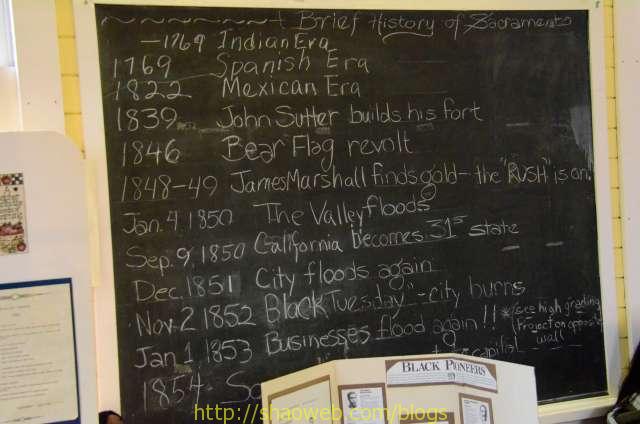 A Brief History of Sacramento
-1769 Indian Era
1769 Spanish Era
1822 Mexican Era
1839 John Sutter builds his fort
1846 Bear Flag revolt
1848-49 James Marshall finds gold - the "RUSH" is on.
Jan. 4, 1850 The Valley floods
Sep. 9, 1850 California becomes 31st state
Dec. 1851 City floods again
Nov 2 1852 "Black Tuesday" - city burns
Jan 1 1853 Businesses flood again!! *(see high grading
Project on opposite
wall
1854 capital
BLACK PIONEERS
http://shaoweb.com/blogs